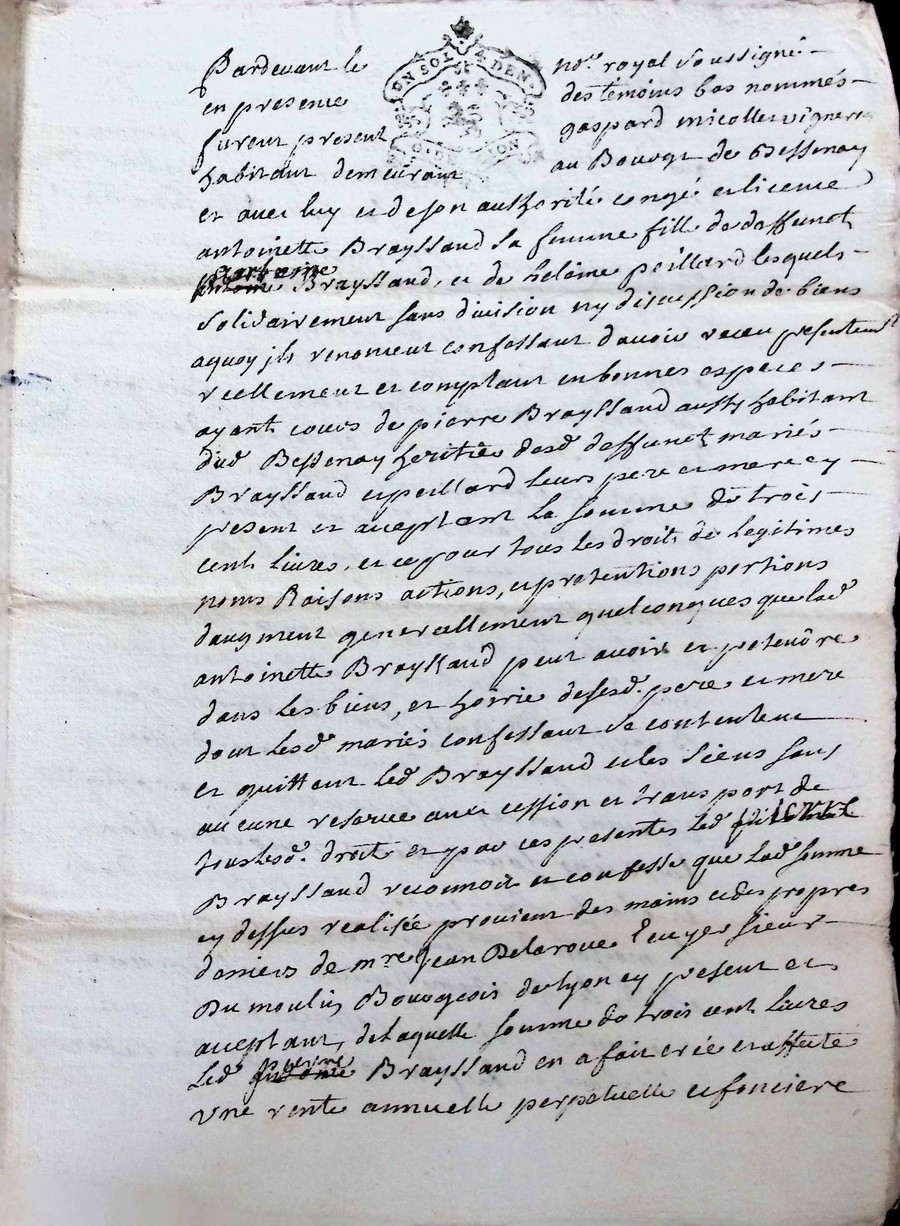 UN SOL 4 DEN.
G. DE LYON
Pardevant le no.re royal soussigné
en presence des témoins bas nommés
furent present gaspard micollet vigneron
habitant demeurant au Bourgt de Bessenay
et avec luy et de son authorité congé et licence
antoinette Brayssand sa femme fille de deffunct
Brayssand, et de helême peillard lesquels
solidairement sans division ny discussion de biens
aquoy jls renoncent confessant d'avoir receu presentemt
reellement et comptant en bonnes especes
ayant cours de pierre Brayssand aussy habitant
dud Bessenay heritie desd deffunct mariés
Brayssand et peillard leurs pere et mere cy
present et aceptant la somme de trois
cent livres, et ce pour tous les droits de legitimes
noms Raisons actions, et pretentions portions
daugment generallement quelconques que lad
antoinette Brayssand peut avoir et pretendre
dans les biens, et hoirie desesd. pere et mere
dont lesd mariés confessant se contentent
et quittent led Brayssand et les siens sans
aucune reserve avec cession et transport de
tous lesd. droits et par ces presentes led pierre
Brayssand reconnois et confesse que lad somme
cy dessus realisée provient des mains et des propres
deniers de mre Jean Delaroue Ecuyer sieur
Du moulin Bourgeois de lyon cy present et
aceptant, de laquelle somme de trois cent livres
Led pierre Brayssand en a fait crée et affecté
Une rente annuelle perpetuelle et fonciere